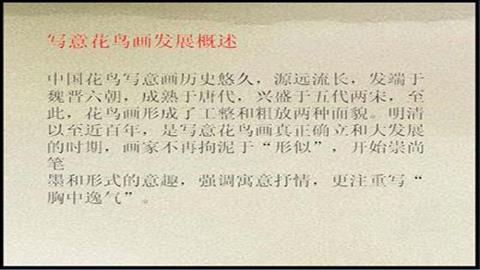 写意花鸟画发展概述
中国花鸟写意画历史悠久，源远流长，发端于
魏晋六朝，成熟于唐代，兴盛于五代两宋，至
此，花鸟画形成了工整和粗放两种面貌。明清
以至近百年，是写意花鸟画真正确立和大发展
的时期，画家不再拘泥于“形似”，开始崇尚
笔
墨和形式的意趣，强调寓意抒情，更注重写“
胸中逸气”。